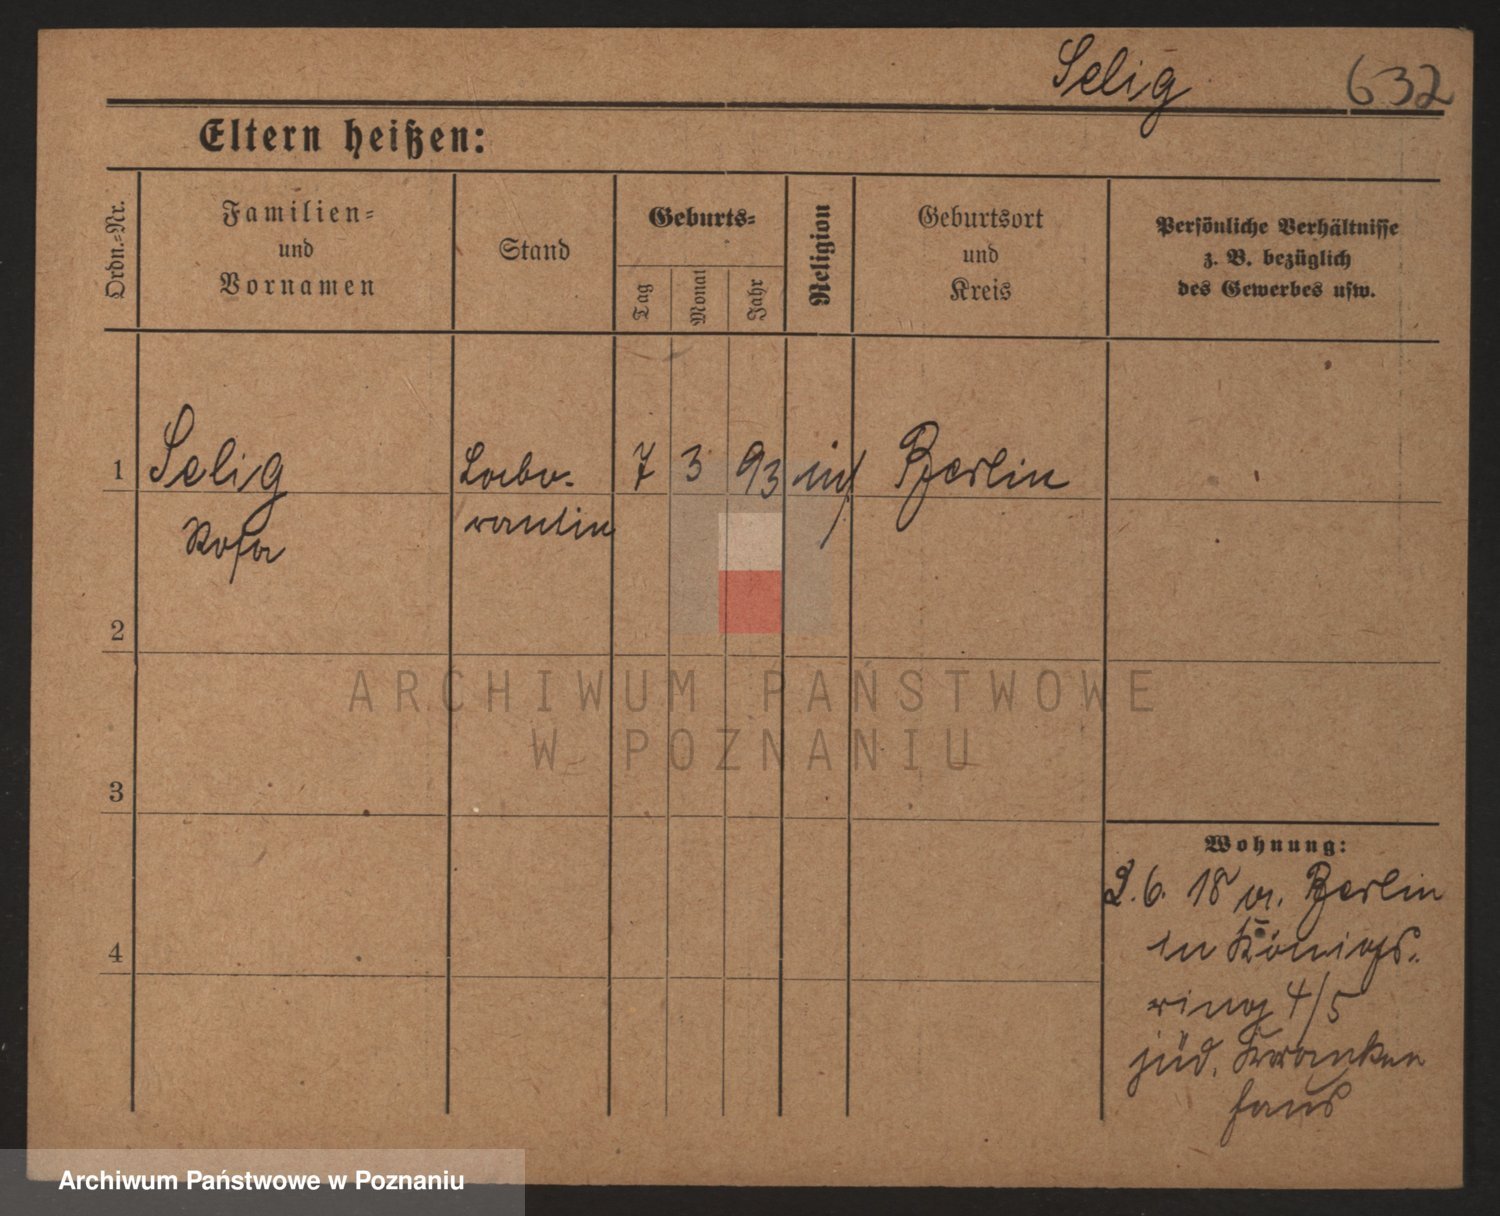 Selig 632
Eltern heißen:
Ordn.-Nr.
Familien-
und
Vornamen
Stand
Geburts-
Tag
Monat
Jahr
Religion
Geburtsort
und
Kreis
Persönliche Verhältnisse
z. B. bezüglich
des Gewerbes usw.
1 Selig Labo- 7 3 93 Berlin
Rosa rantin
2
3
4
Wohnung:
2. 6. 18 v. Berlin
in Königs-
ring 4/5
jüd. Kranken
haus
ARCHIWUM PAŃSTWOWE
W POZNANIU
Archiwum Państwowe w Poznaniu